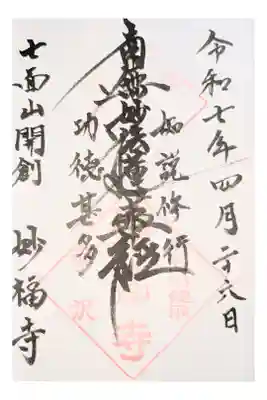 令和七年四月二十六日
如説修行
南無妙法蓮華経
功徳甚多
七面山開創
妙福寺